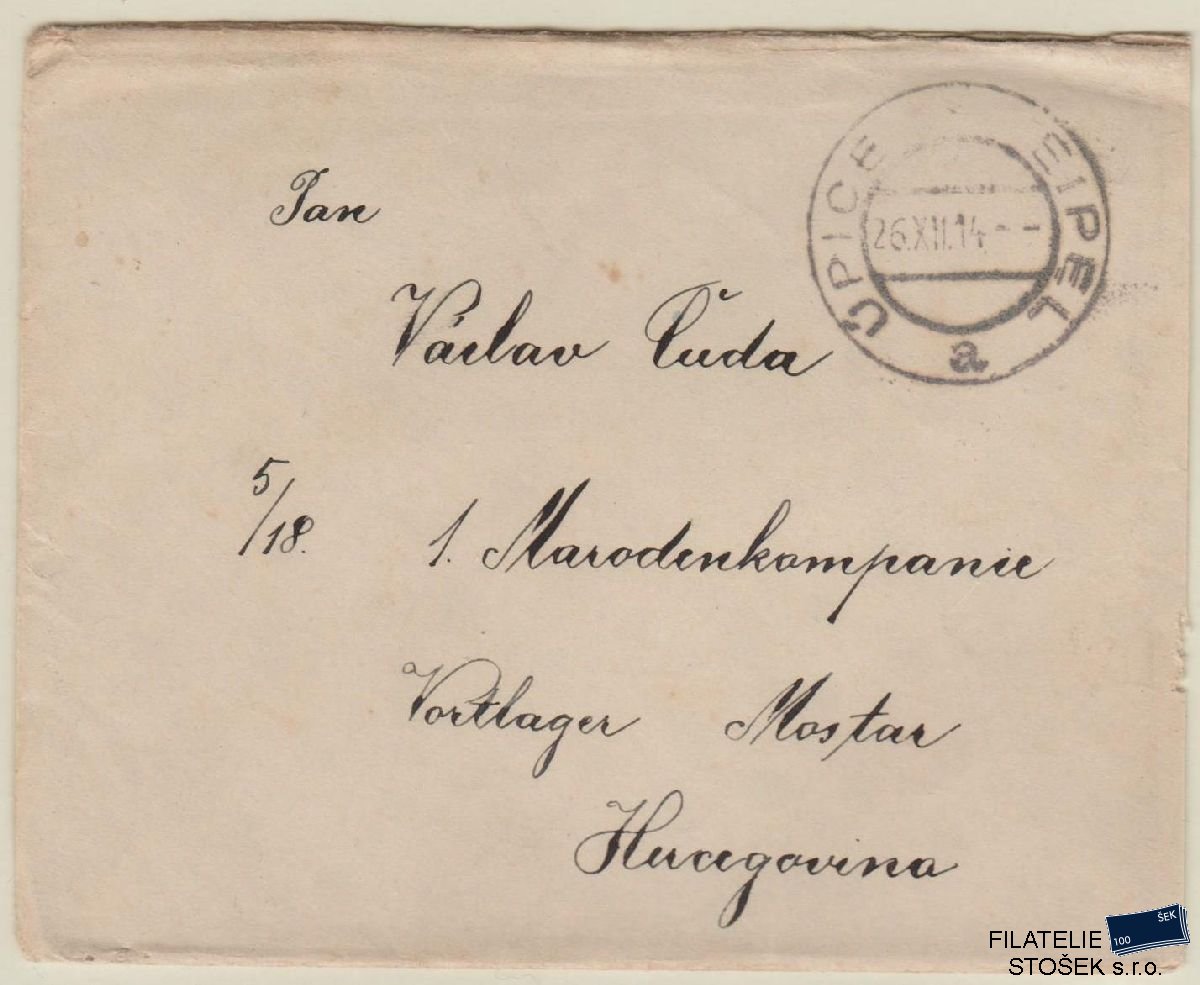 Pan
Václav Čuda
5/18. 1. Marodenkompanie
Nordlager Mostar
Hercegovina
ÚPICE EIPEL
26.XII.14--
a
FILATELIE
STOŠEK s.r.o.
100 ŠEK